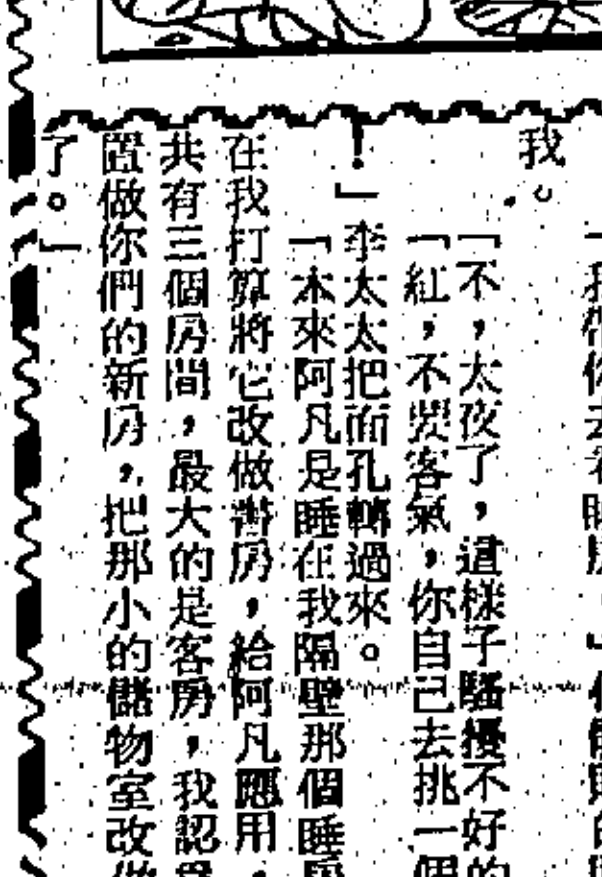 我帶你去看睡房。」
我。
「不，太夜了，這樣子騷擾不好的
「紅，不要客氣，你自己去挑一個
！」李太太把面孔轉過來。
「本來阿凡是睡在我隔壁那個睡房
在我打算將它改做書房，給阿凡應用，
共有三個房間，最大的是客房，我認爲
置做你們的新房，把那小的儲物室改做
了。」